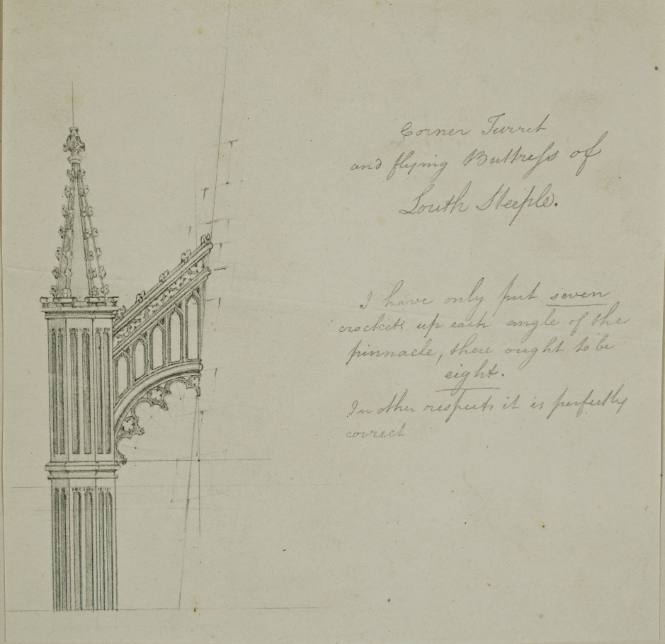 Corner Turret
and flying Buttress of
Louth Steeple.
I have only put seven
crockets up each angle of the
pinnacle, there ought to be
eight.
In other respects it is perfectly
correct